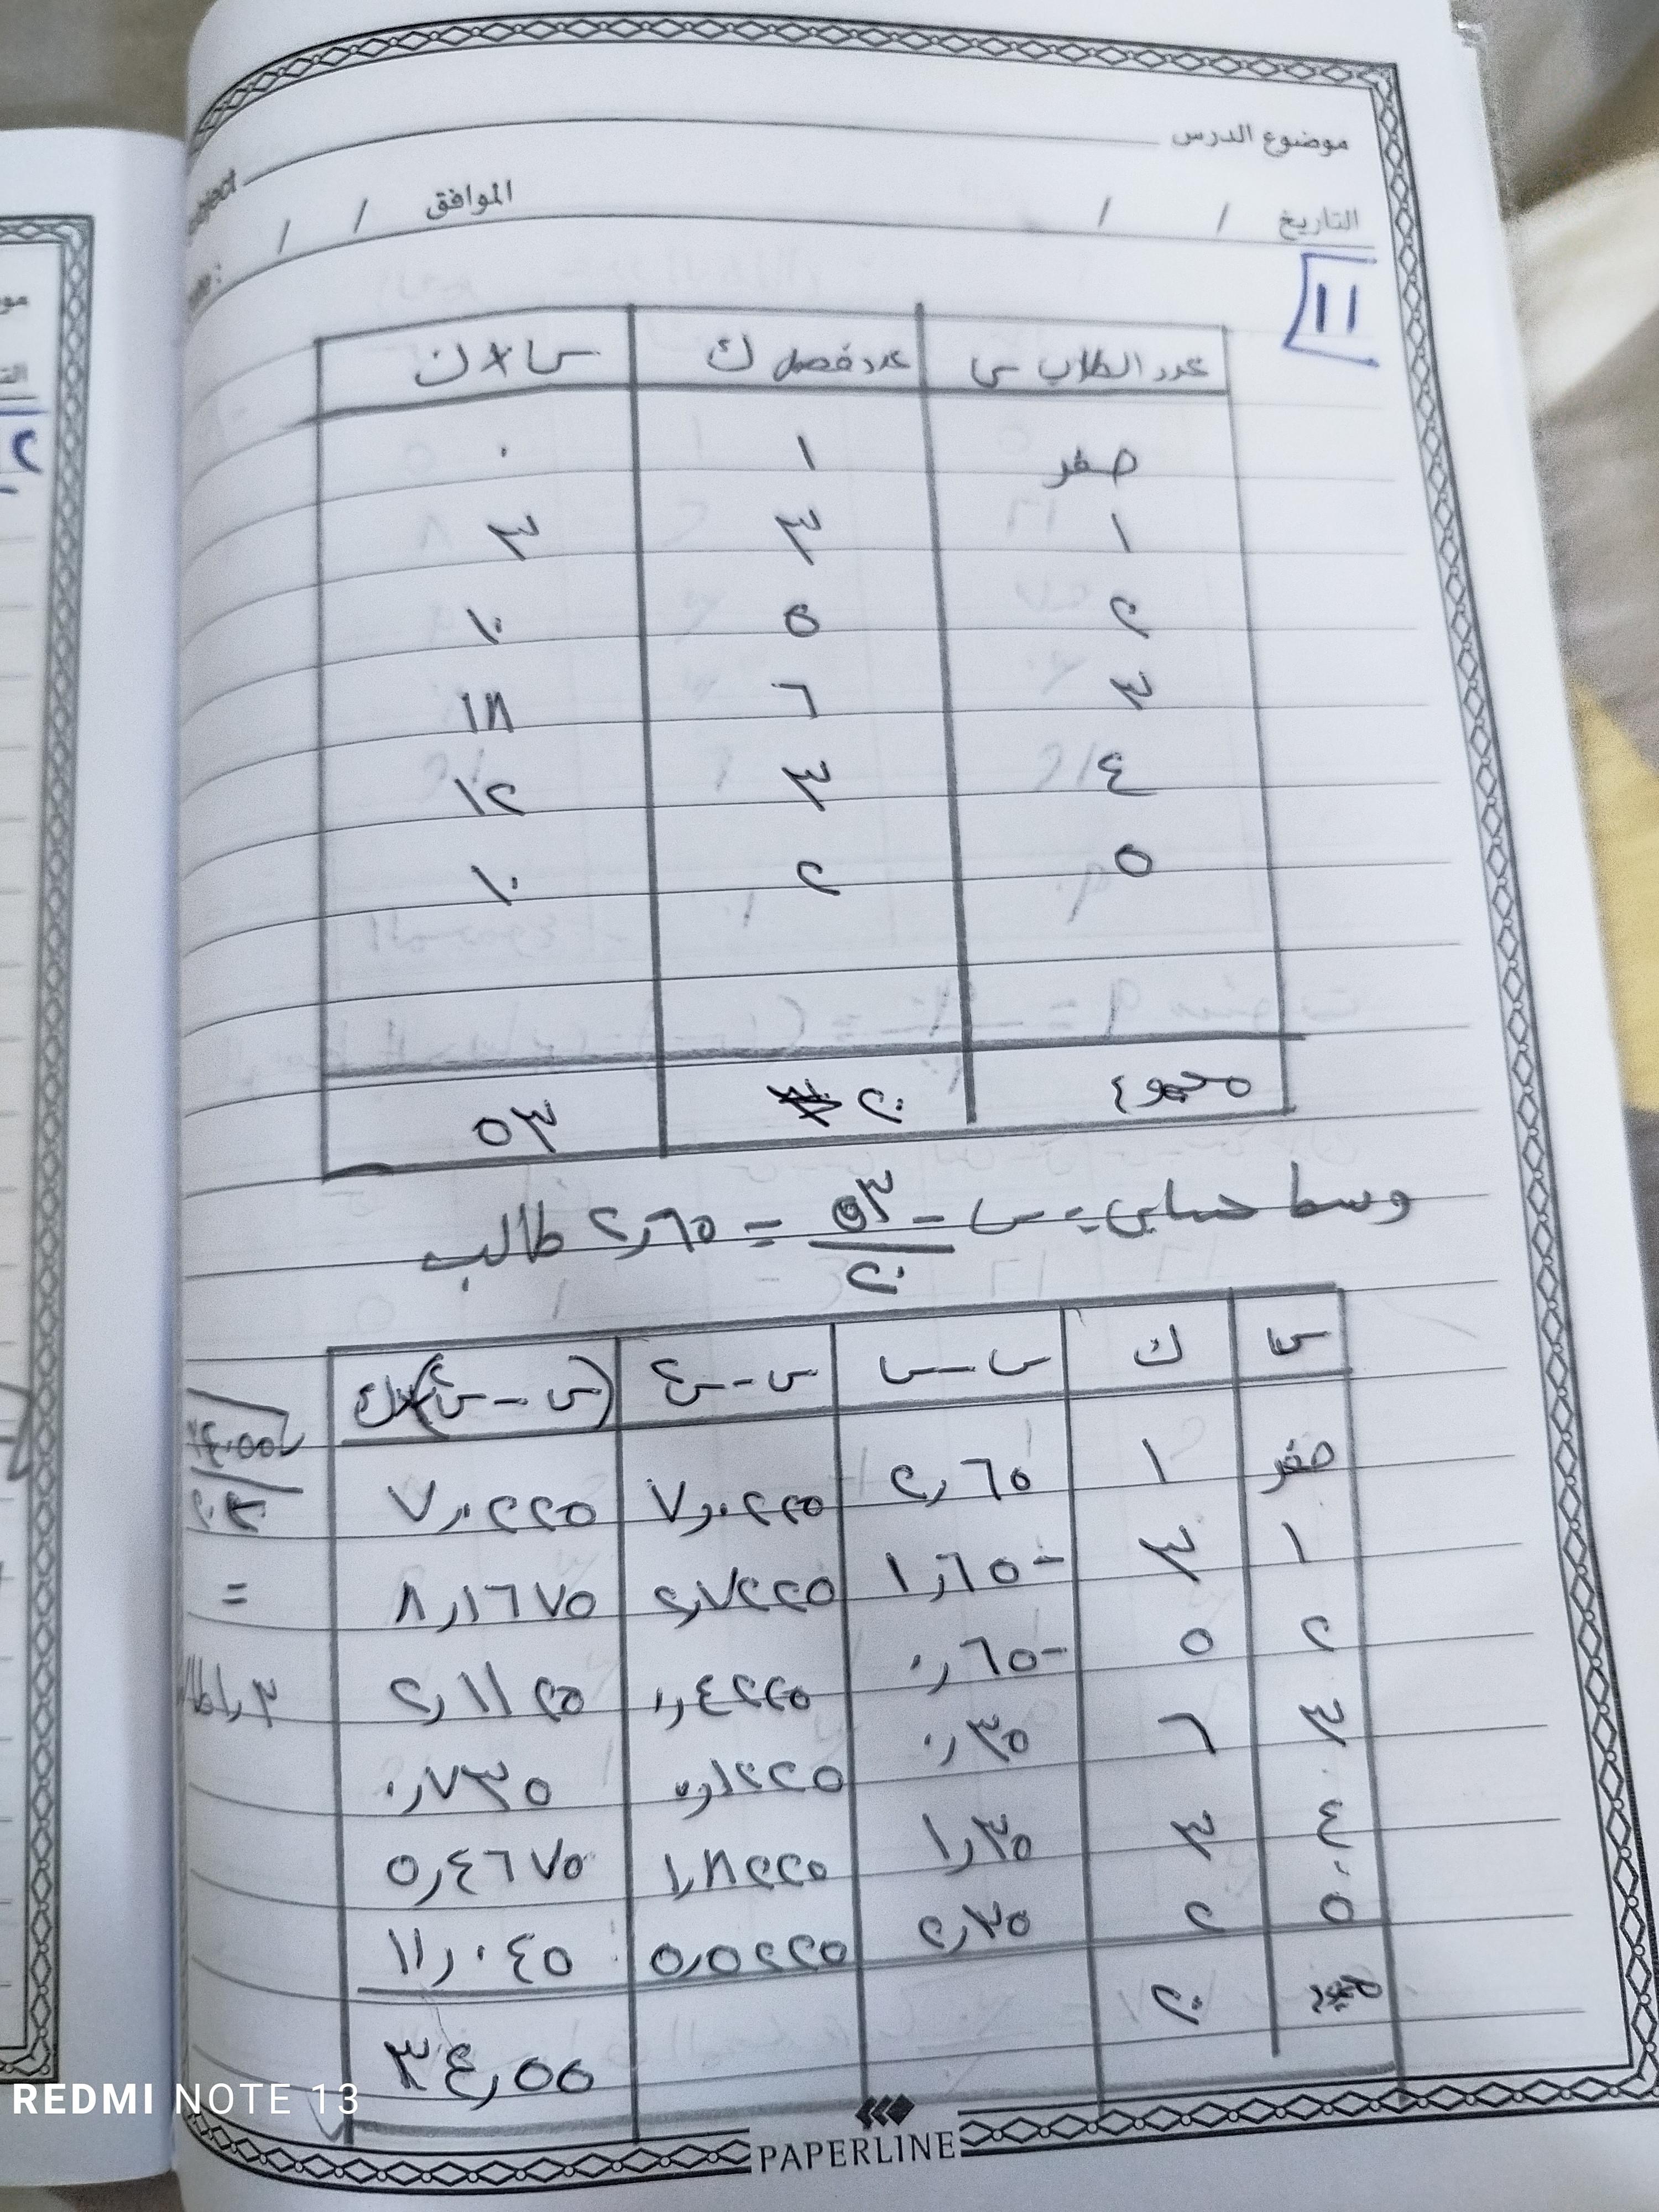 موضوع الدرس
التاريخ / / الموافق / /
١١
عدد الطلاب س عدد فصل ك س×ك
صفر ١ ٠
١ ٣ ٣
٢ ٥ ١٠
٣ ٦ ١٨
٤ ٣ ١٢
٥ ٢ ١٠
مجموع ٢٠ ٥٣
وسط حسابي = س = ٥٣/٢٠ = ٢,٦٥ طالب
س ك س-س (س-س)² (س-س)²×ك
صفر ١ ٢,٦٥ ٧,٠٢٢٥ ٧,٠٢٢٥
١ ٣ -١,٦٥ ٢,٧٢٢٥ ٨,١٦٧٥
٢ ٥ -٠,٦٥ ٠,٤٢٢٥ ٢,١١٢٥
٣ ٦ ٠,٣٥ ٠,١٢٢٥ ٠,٧٣٥
٤ ٣ ١,٣٥ ١,٨٢٢٥ ٥,٤٦٧٥
٥ ٢ ٢,٣٥ ٥,٥٢٢٥ ١١,٠٤٥
مجموع ٢٠ ٣٤,٥٥
=
PAPERLINE
REDMI NOTE 13